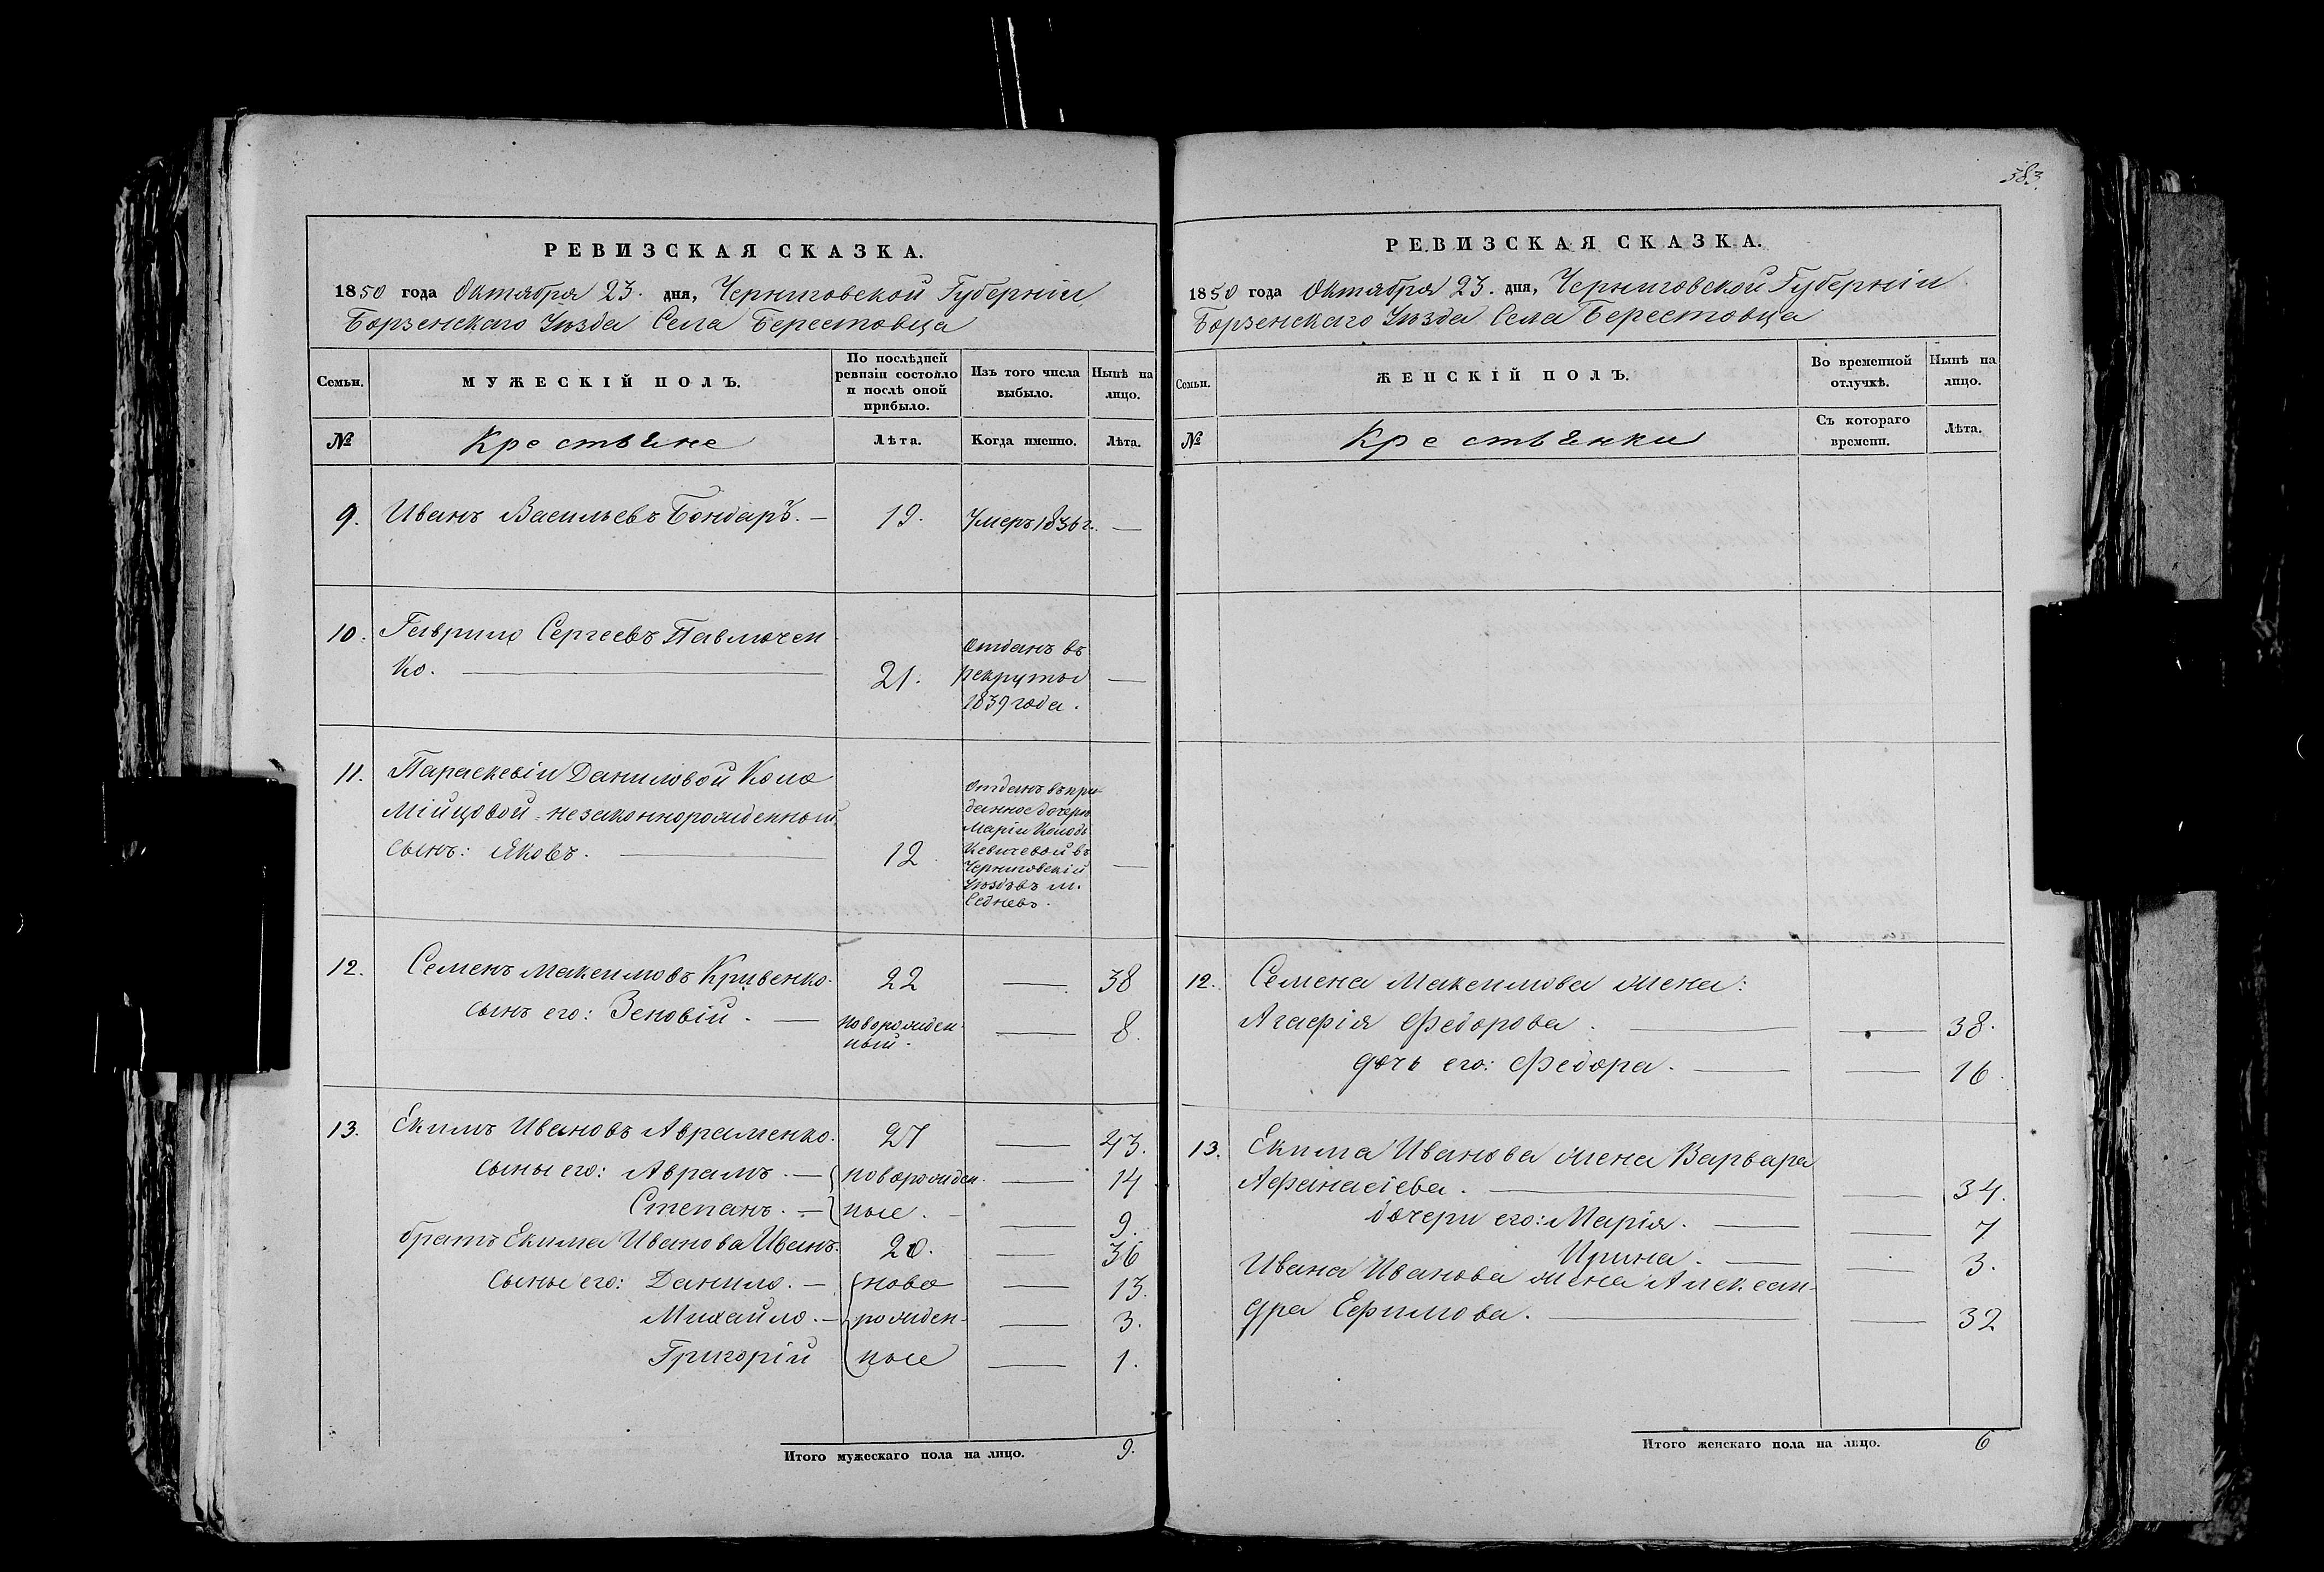 583.
РЕВИЗСКАЯ СКАЗКА.
1850 года Октября 23. дня, Черниговской Губерніи
Борзенскаго Уѣзда Села Берестовца
Семьи.
МУЖЕСКІЙ ПОЛЪ.
По послѣдней
ревизіи состояло
и послѣ оной
прибыло.
Изъ того числа
выбыло.
Нынѣ на
лицо.
№
Крестьяне
Лѣта.
Когда именно.
Лѣта.
9. Иванъ Васильевъ Бондарь. — 19. Умеръ 1836 г. —
10. Гаврило Сергеевъ Павлючен
ко. — 21. Отданъ въ
рекруты —
1839 года.
11. Параскевіи Даниловой Коло
мійцовой незаконнорожденный
сынъ: Яковъ. — 12. —
Отданъ въ при-
данное дочери
Маріи
въ
Черниговскій
Уѣздъ въ м.
Седневъ.
12. Семенъ Максимовъ Кривенко. 22 — 38
сынъ его: Зеновій. — новорожден- — 8.
ный.
13. Екимъ Ивановъ Авраменко. 27 — 43.
сыны его: Аврамъ. — новорожден- — 14
Степанъ. — ные. — 9.
братъ Екима Иванова Иванъ. 20. — 36
сыны его: Данило. — ново — 13.
Михайло. — рожден- — 3.
Григорій ные — 1.
Итого мужескаго пола на лицо. 9.
РЕВИЗСКАЯ СКАЗКА.
1850 года Октября 23. дня, Черниговской Губерніи
Борзенскаго Уѣзда Села Берестовца
Семьи.
ЖЕНСКІЙ ПОЛЪ.
Во временной
отлучкѣ.
Нынѣ на
лицо.
№
Крестьянки
Съ котораго
времени.
Лѣта.
12. Семена Максимова жена:
Агафія Федорова. — — 38.
дочь его: Федора. — — 16.
13. Екима Иванова жена Варвара
Афанасіева. — — 34.
дочери его: Марія. — — 7
Ирина. — — 3.
Ивана Иванова жена Алексан-
дра Ефимова. — — 32
Итого женскаго пола на лицо. 6